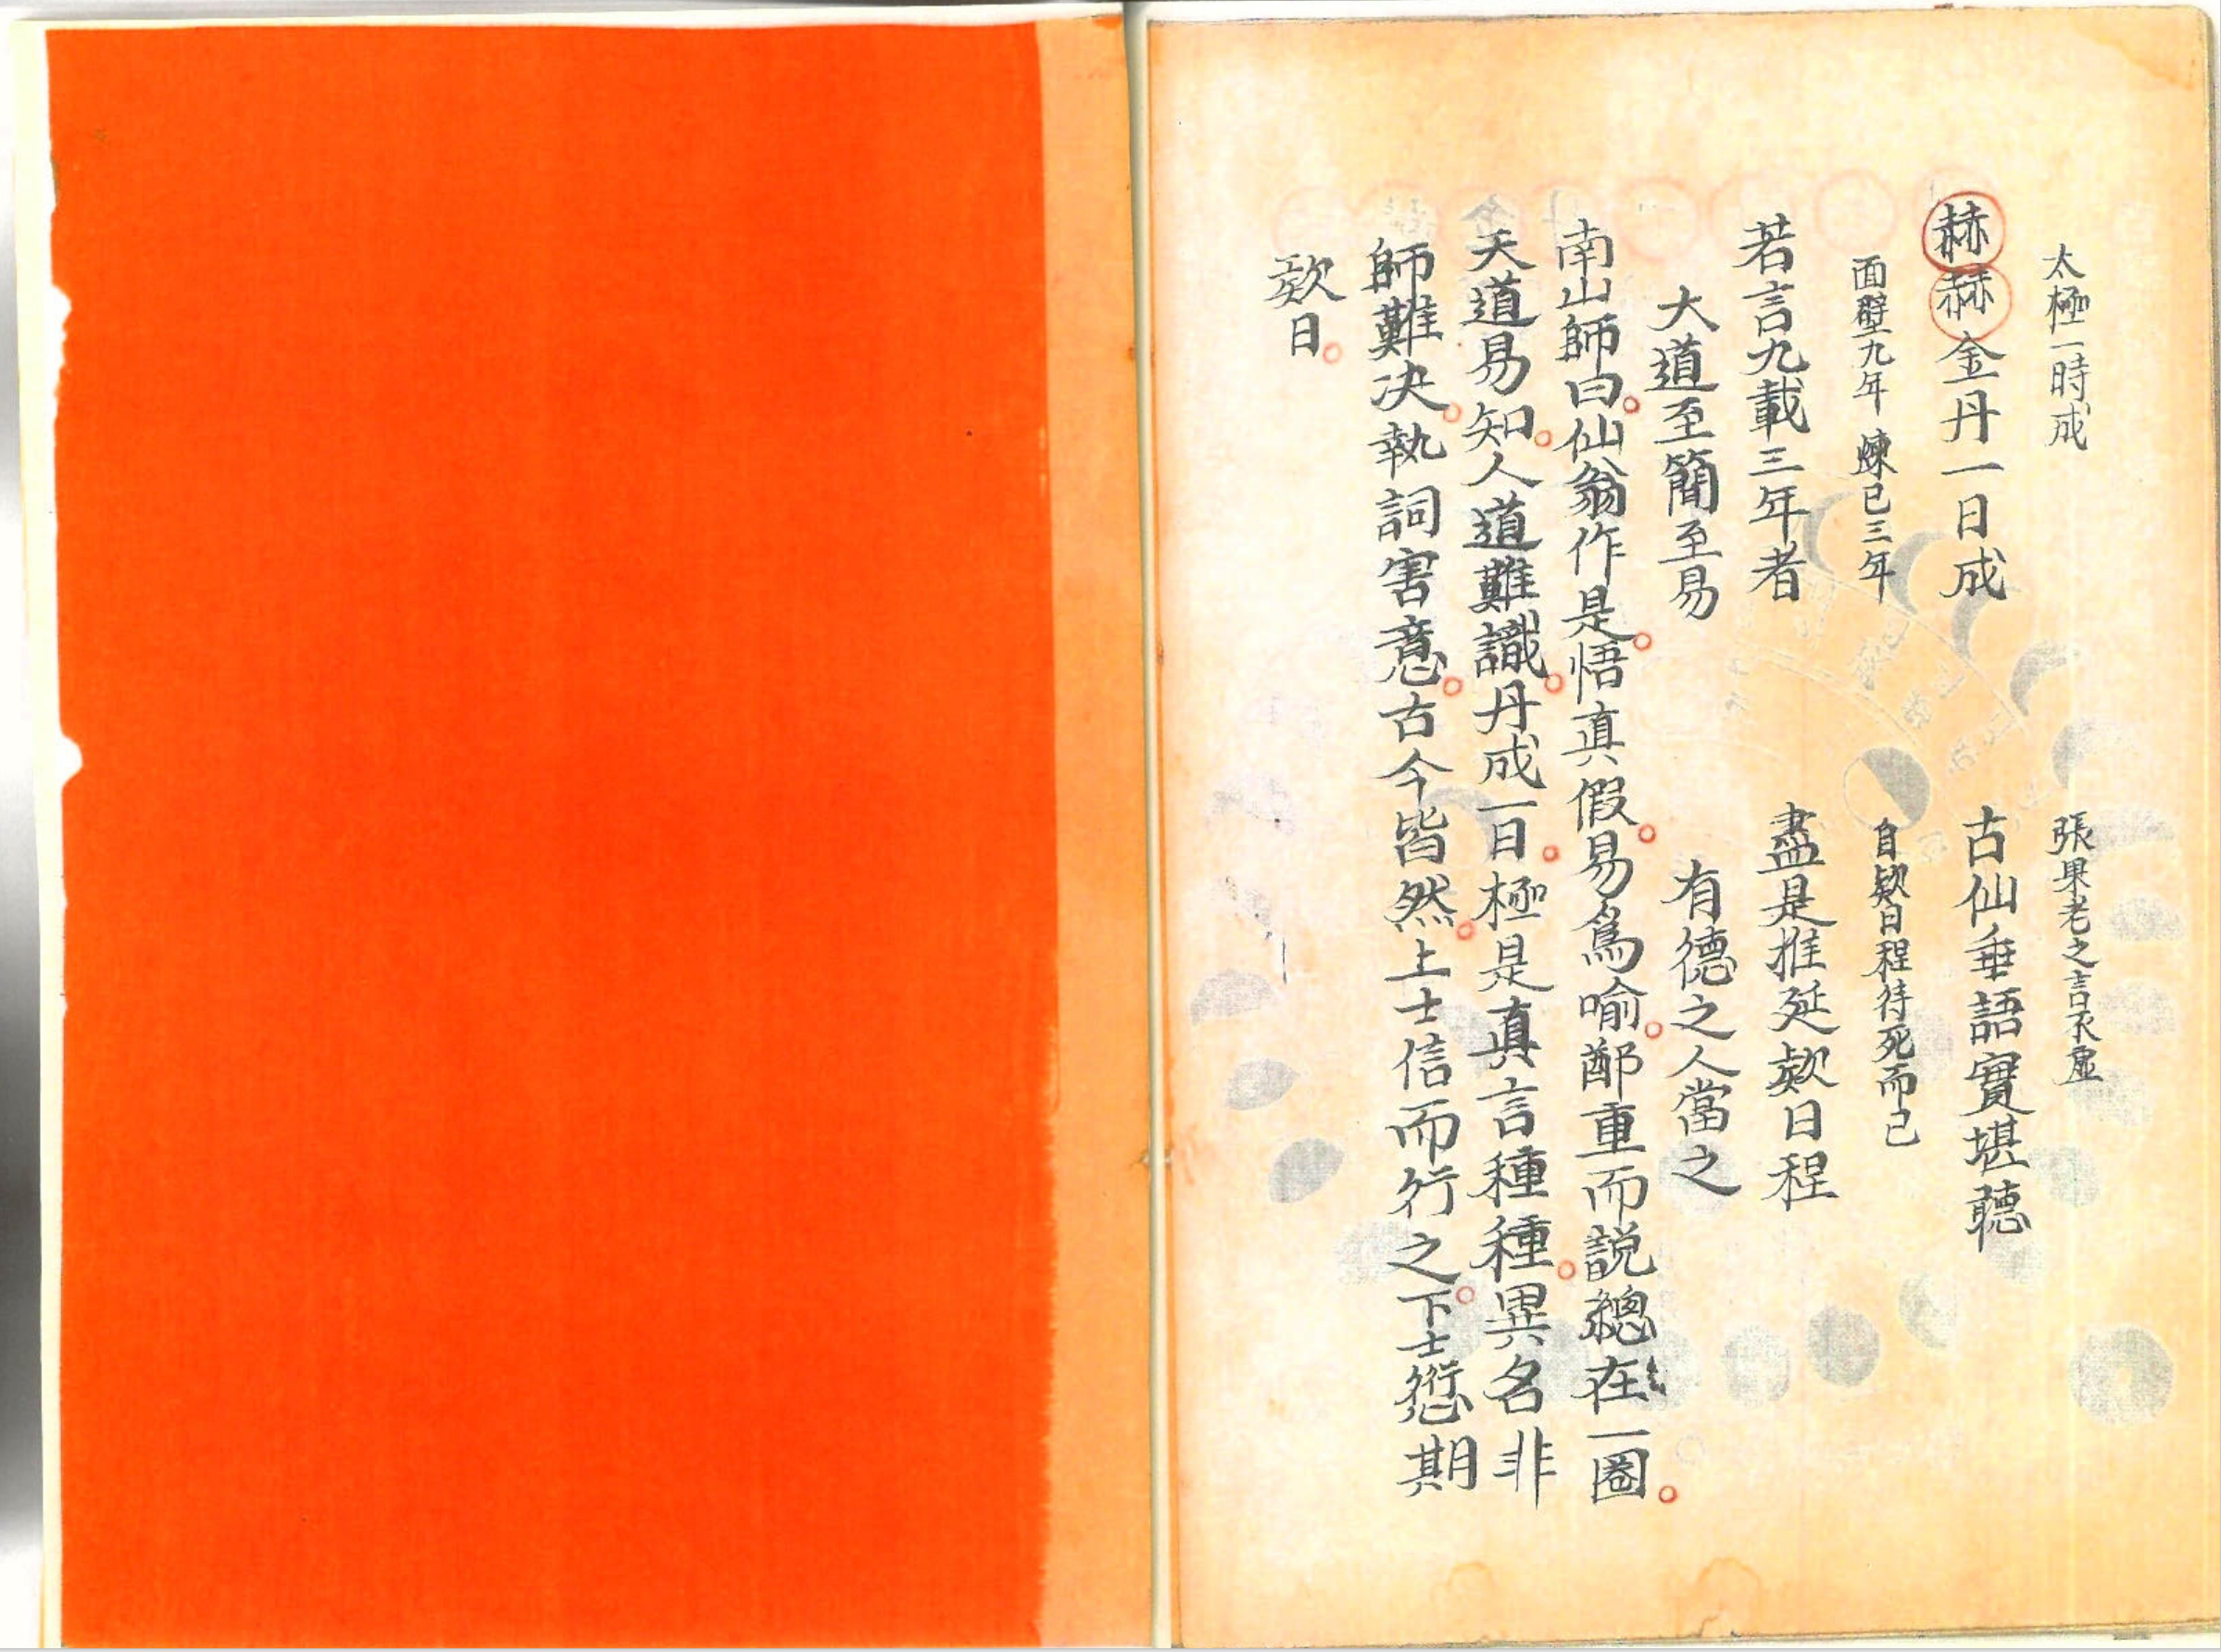 太極一時成　張果老之言不虛
赫赫金丹一日成　古仙垂語實堪聽
面壁九年　煉已三年　自欵日程待死而已
若言九載三年者　盡是推延欵日程
大道至簡至易　有德之人當之
南山師曰。仙翁作是。悟真假。易爲喻。鄭重而説總在一圈。
天道易知。人道難識。丹成一日。極是真言種種。異名非
師難决。執詞害意。古今皆然。上士信而行之。下士愆期
欵日。